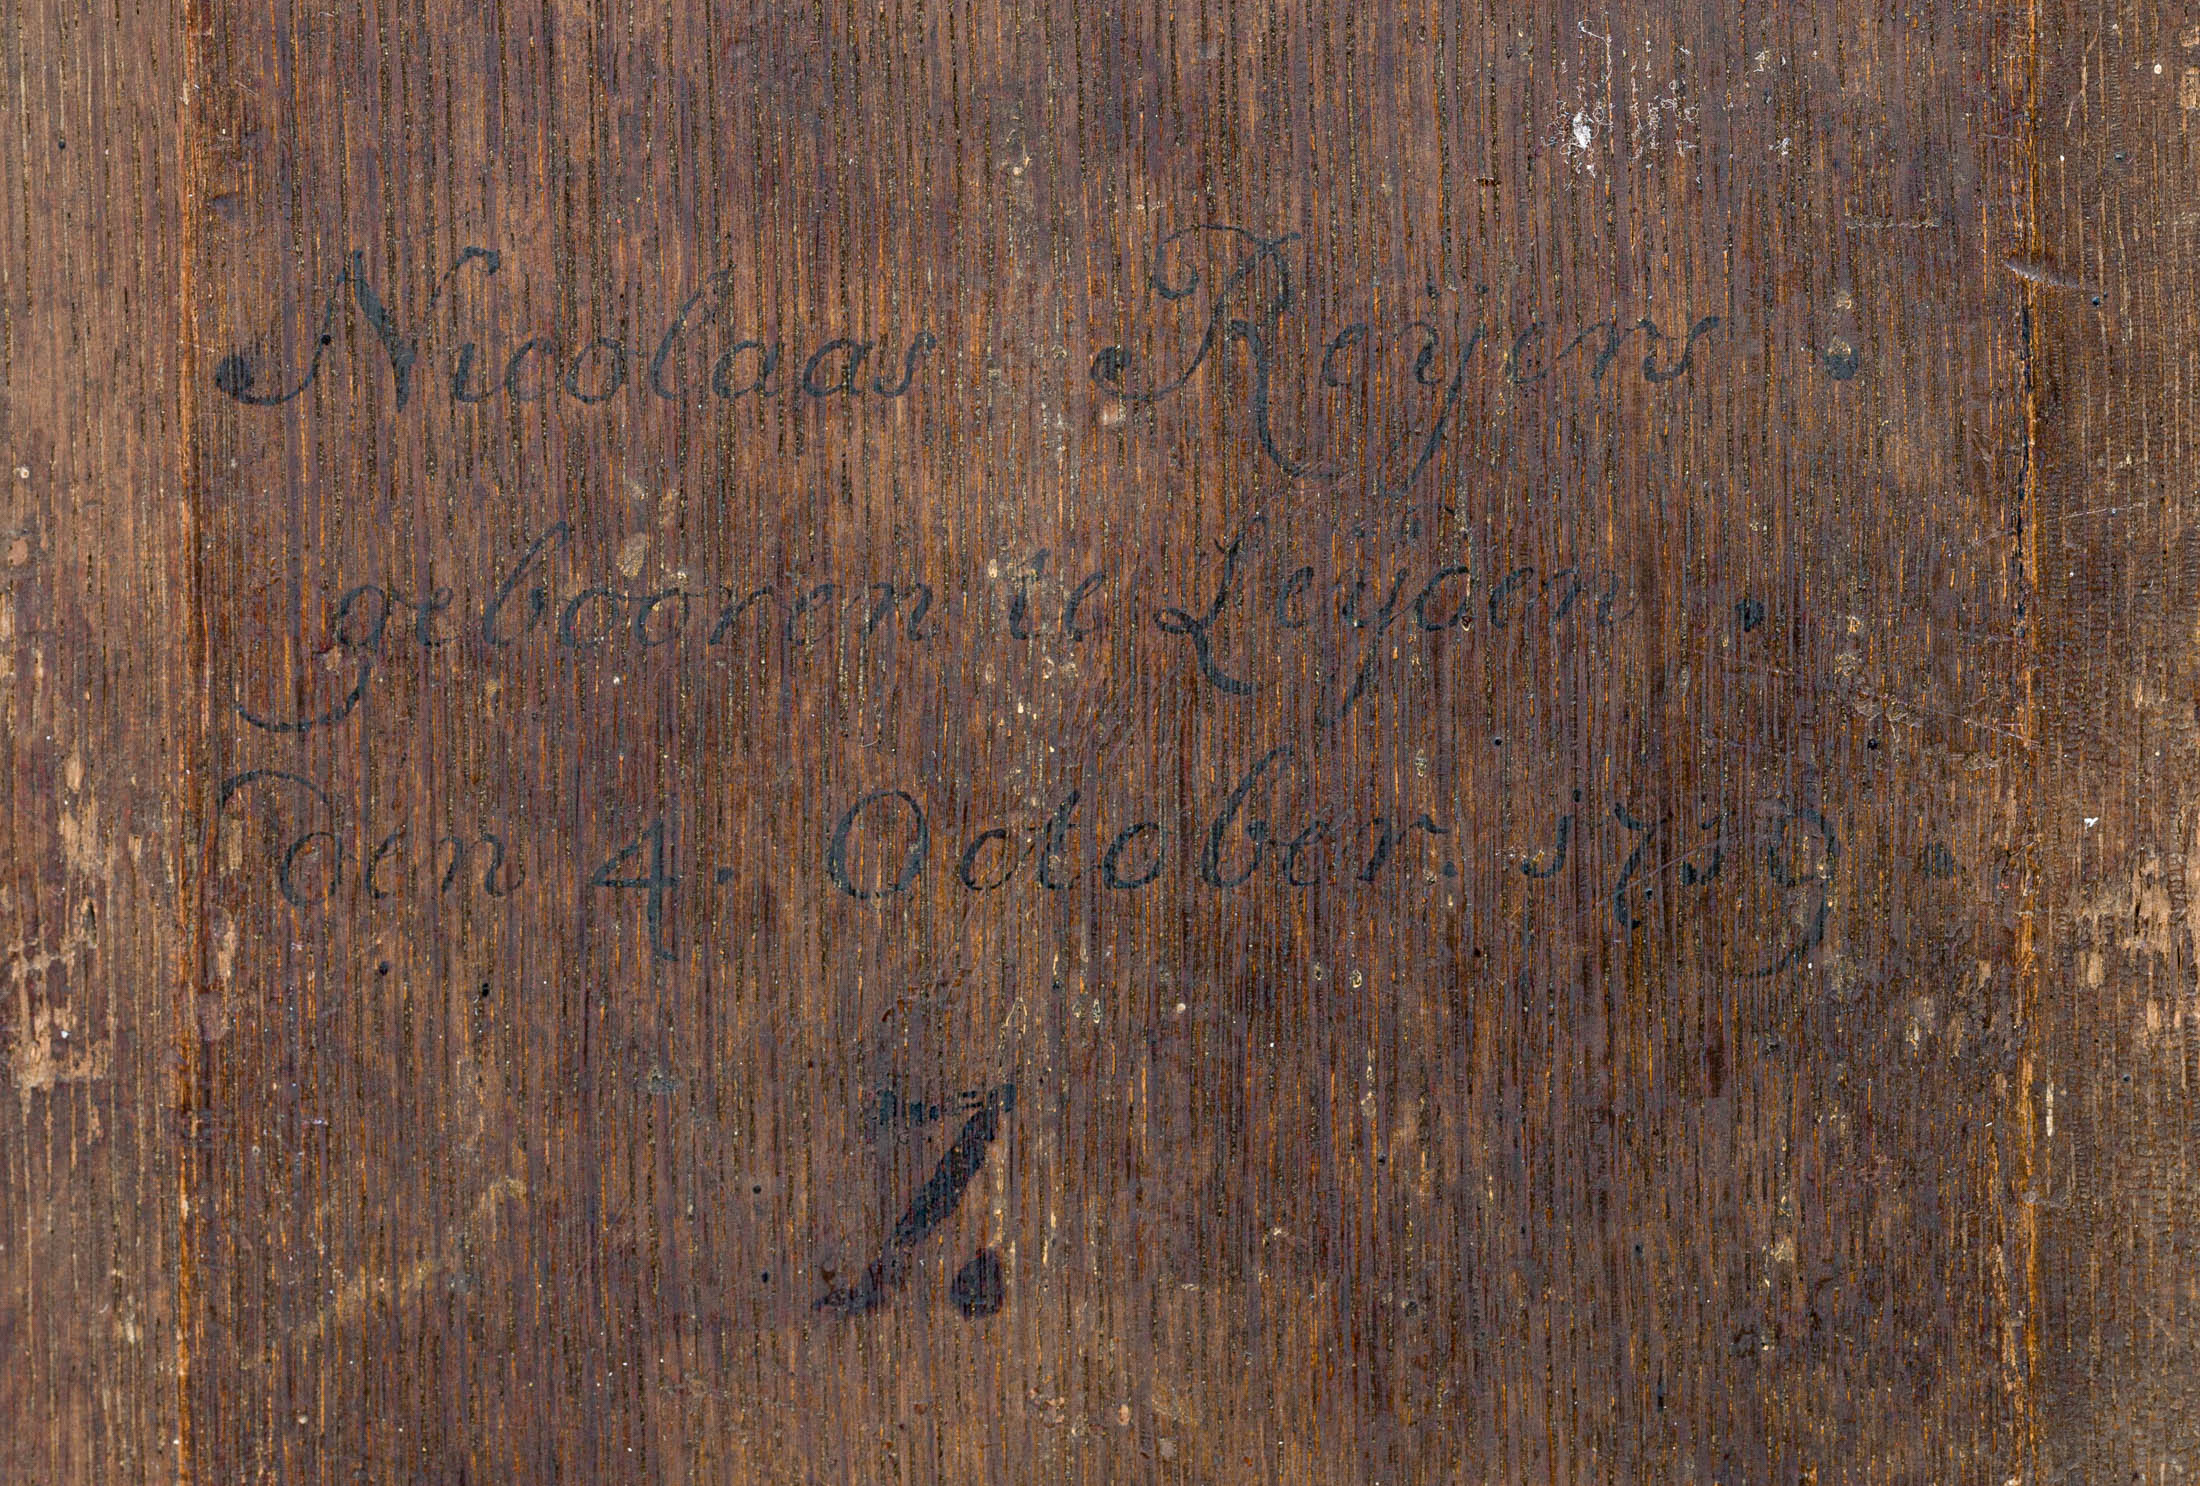 Nicolaas Reÿens .
gebooren te Leÿden .
den 4. October. 1719 .
7.